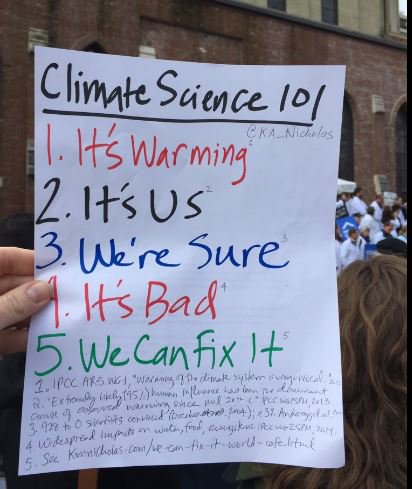 Climate Science 101
@KA_Nicholas
1. It's Warming 1
2. It's Us 2
3. We're Sure 3
4. It's Bad 4
5. We Can fix It 5
1. IPCC AR5 WG1, "Warming of the climate system is unequivocal." 2013
2. "Extremely likely (95%) human influence has been the dominant
cause of observed warming since mid 20th C" IPCC WG1 SPM, 2013.
3. 928 to 0 scientists convinced (Oreskes 2004); Anderegg et al.
4. Widespread impacts on water, food, ecosystems. IPCC WG2 SPM, 2014.
5. See kimnicholas.com/we-can-fix-it-world-cafe.html